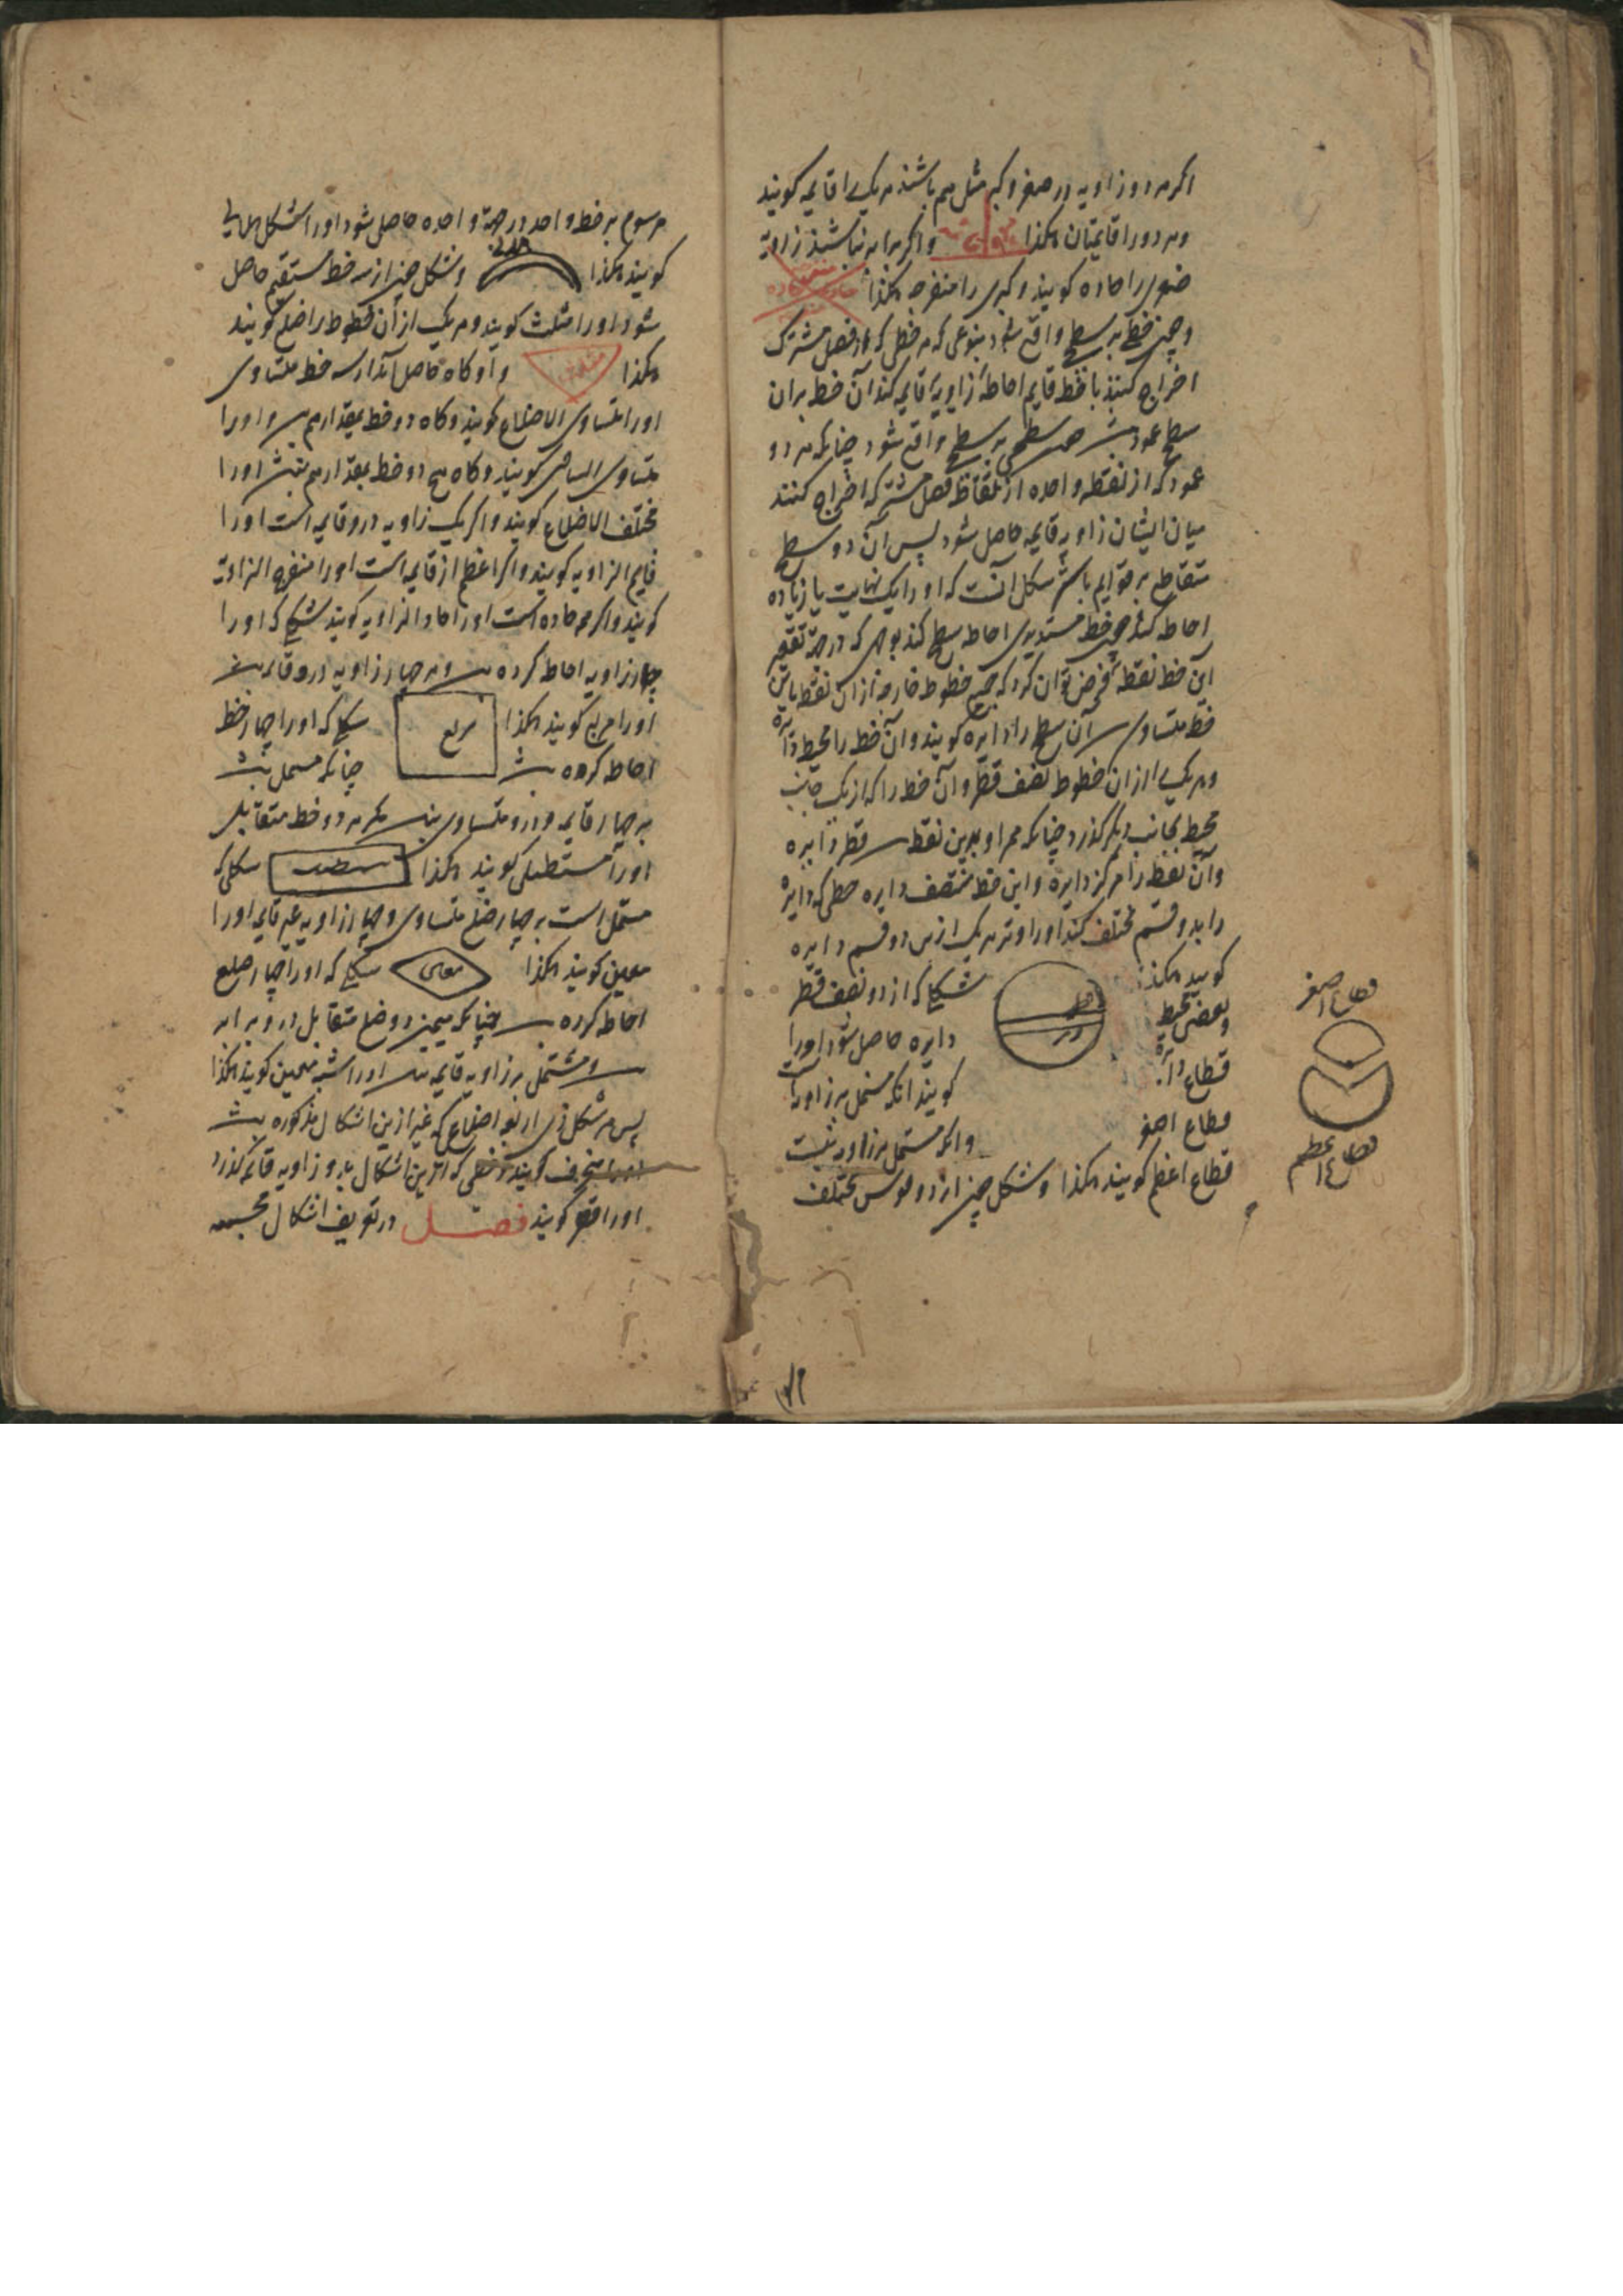 اگر هر دو زاویه در صغر و کبر مثل هم باشند هر یکی را قایمه گویند
و هر دو را قایمتان هکذا و اگر برابر نباشند زاویه
صغری را حاده گویند و کبری را منفرجه هکذا
و چون خطی بر سطح واقع شود بنوعی که هر خطی که از فصل مشترک
اخراج کنند با خط قایم احاطه زاویه قایمه کند آن خط بر آن
سطح عمود باشد سطحی بر سطح واقع شود چنانکه هر دو
عمود که از نقطه واحده از نقاط فصل مشترک اخراج کنند
میان ایشان زاویه قایمه حاصل شود پس آن دو سطح
متقاطع بر قوایم باشد شکل آنست که او را یک نهایت یا زیاده
احاطه کند چون خط مستدیری احاطه سطح کند بوجهی که در جهة تقعیر
آن خط نقطه فرض توان کرد که جمیع خطوط خارجه از آن نقطه باین
خط متساوی آن سطح را دایره گویند و آن خط را محیط دایره
و هر یکی از آن خطوط نصف قطر و آن خط را که از یک جانب
محیط بجانب دیگر گذرد چنانکه ممر او بدین نقطه قطر دایره
و آن نقطه را مرکز دایره و این خط منصف دایره خطی که دایره
را بدو قسم مختلف کند او را وتر هر یک ازین دو قسم دایره
گویند هکذا شکلی که از دو نصف قطر
و بعضی محیط دایره حاصل شود او را
قطاع دایره گویند آنکه مشتمل بر زاویه
قطاع اصغر و آنکه مشتمل بر زاویه نیست
قطاع اعظم گویند هکذا و شکل چون از دو قوس مختلف
قطاع اصغر
قطاع اعظم
مرسوم بر خط واحد در جهة واحده حاصل شود او را شکل هلالی
گویند هکذا هلالی و شکل چون از سه خط مستقیم حاصل
شود او را مثلث گویند و هر یک از آن خطوط را ضلع گویند
هکذا مثلث و او گاه حاصل آید از سه خط متساوی
او را متساوی الاضلاع گویند و گاه دو خط بمقدار هم او را
متساوی الساقین گویند و گاه هیچ دو خط بمقدار هم نباشد او را
مختلف الاضلاع گویند و اگر یک زاویه درو قایمه است او را
قایم الزاویه گویند و اگر اعظم از قایمه است او را منفرج الزاویه
گویند و اگر همه حاده است او را حاد الزاویه گویند شکلی که او را
چهار زاویه احاطه کرده و هر چهار زاویه درو قایمه
او را مربع گویند هکذا مربع شکلی که او را چهار خط
احاطه کرده باشد چنانکه مشتمل باشد
بر چهار قایمه و درو متساوی نباشد مگر هر دو خط متقابل
او را مستطیل گویند هکذا مستطیل شکلی که
مشتمل است بر چهار ضلع متساوی و چهار زاویه غیر قایمه او را
معین گویند هکذا معین شکلی که او را چهار ضلع
احاطه کرده چنانکه همین دو ضلع متقابل درو برابر
و مشتمل بر زاویه قایمه نباشد او را شبه معین گویند هکذا
پس هر شکل ذی اربعه اضلاع که غیر ازین اشکال مذکوره باشد
او را منحرف گویند و خطی که ازین اشکال بدو زاویه قایمه گذرد
او را قطر گویند فصل در تعریف اشکال مجسمه